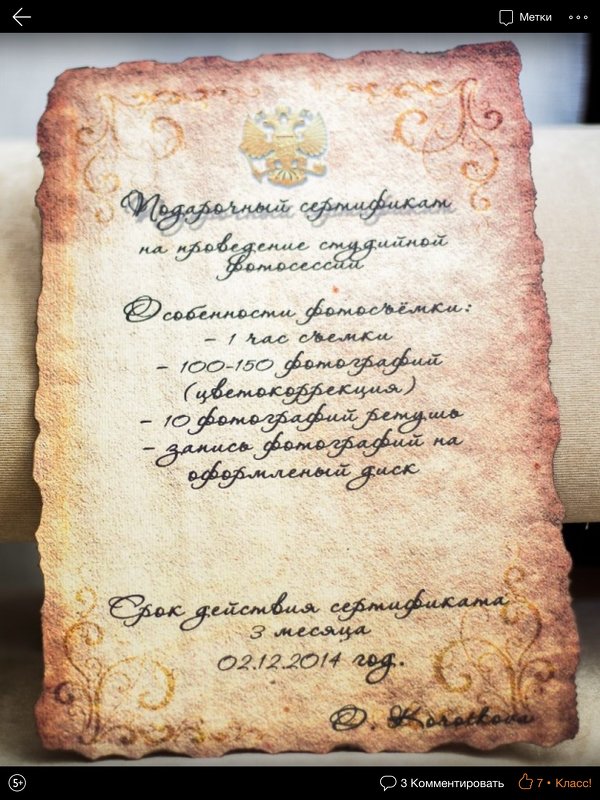 Метки
Подарочный сертификат
на проведение студийной
фотосессии
Особенности фотосъёмки:
- 1 час съемки
- 100-150 фотографий
(цветокоррекция)
- 10 фотографий ретушь
- запись фотографий на
оформленый диск
Срок действия сертификата
3 месяца
02.12.2014 год.
O. Korotkova
5+
3 Комментировать
7 • Класс!